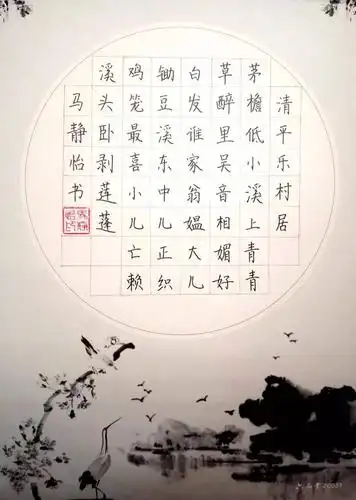 清平乐村居
茅檐低小溪上青青
草醉里吴音相媚好
白发谁家翁媪大儿
锄豆溪东中儿正织
鸡笼最喜小儿亡赖
溪头卧剥莲蓬
马静怡书